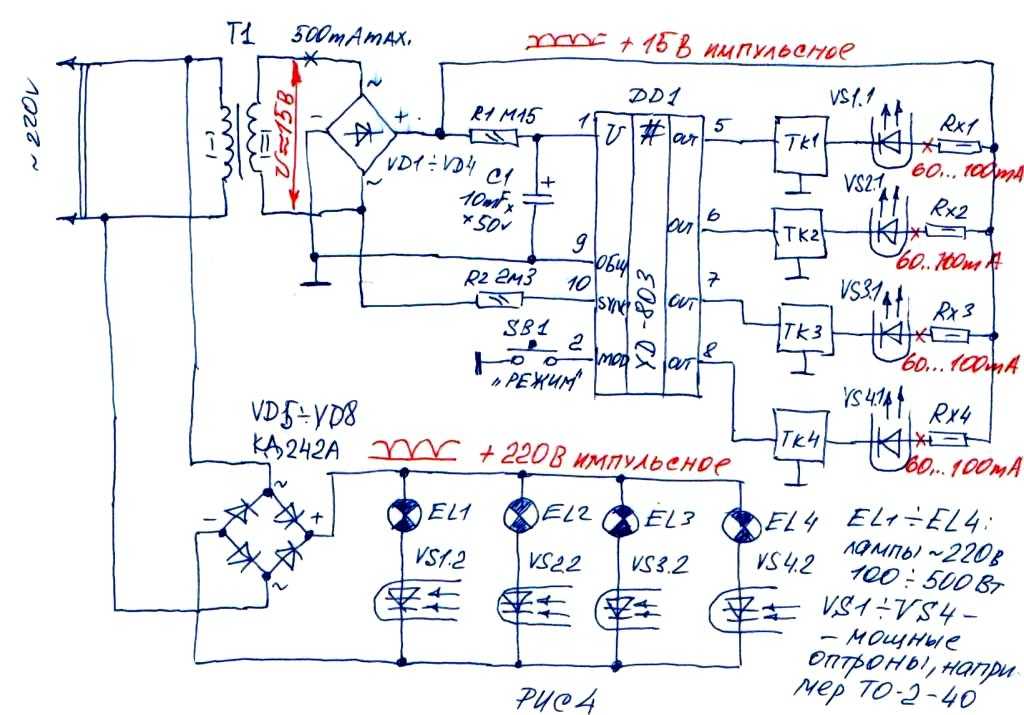 T1
500mA max.
+ 15В импульсное
~220V
I
II
U≈15В
~
-
+
~
VD1÷VD4
R1 M15
C1
+
10mF x
x 50V
DD1
1
U
#
OUT
5
TK1
VS1.1
Rx1
60...100mA
OUT
6
TK2
VS2.1
Rx2
60..100mA
9
ОБЩ
R2 2M3
10
SYN
XD-803
OUT
7
TK3
VS3.1
Rx3
60...100mA
SB1
2
MOD
„РЕЖИМ"
OUT
8
TK4
VS4.1
Rx4
60...100mA
VD5÷VD8
КД242А
~
-
+
~
+ 220В импульсное
EL1
EL2
EL3
EL4
VS1.2
VS2.2
VS3.2
VS4.2
EL1÷EL4:
лампы ~220в
100÷500Вт
VS1÷VS4-
- мощные
оптроны, напри-
мер ТО-2-40
РИС 4